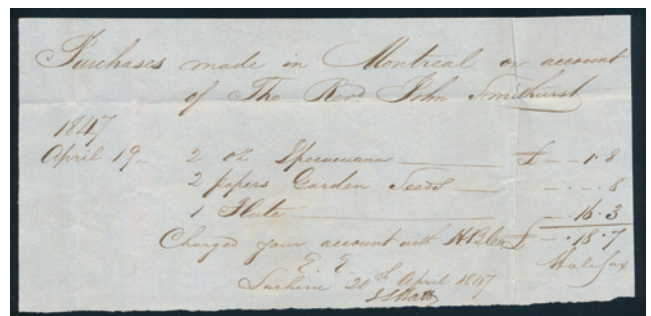 Purchases made in Montreal on account
of The Revd. John Smithurst
1847
April 19 2 oz Ipecacuana £ - - 1 . 8
2 papers Garden Seeds - . - . 8
1 Flute - . 16 . 3
Charged your account with H B Co. £ - . 18 . 7
E. E. Halifax
Lachine 20th April 1847